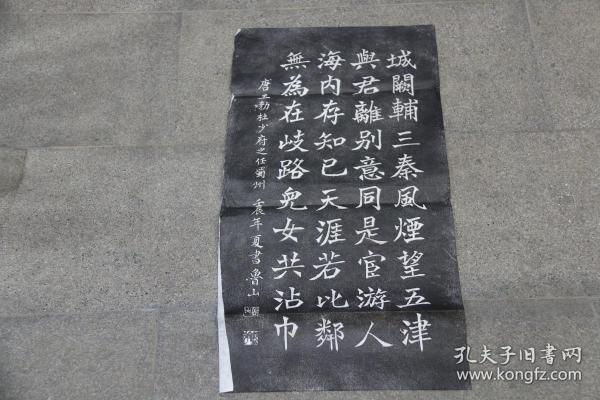 城闕輔三秦風煙望五津
與君離別意同是宦游人
海内存知己天涯若比鄰
無為在歧路兒女共沾巾
唐王勃杜少府之任蜀州 壬辰年夏書魯山
孔夫子旧书网
www.kongfz.com